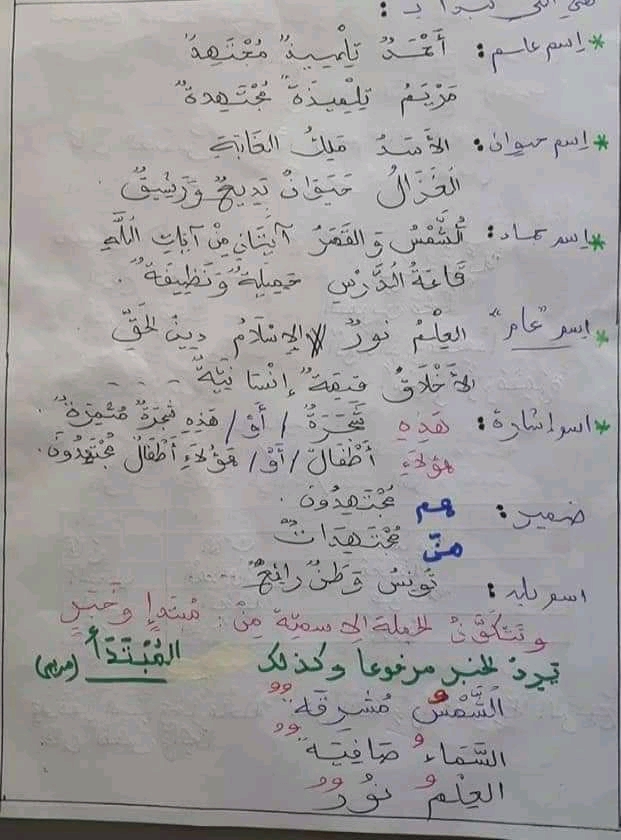 هي التي تبدأ بـ :
* إسم علم : أَحْمَدٌ تِلْمِيذٌ مُجْتَهِدٌ
مَرْيَمُ تِلْمِيذَةٌ مُجْتَهِدةٌ
* إسم حيوان : الأَسَدُ مَلِكُ الغَابَةِ
الغَزَالُ حَيَوَانٌ بَدِيعٌ وَرَشِيقٌ
* إسم جماد : الشَّمْسُ وَالقَمَرُ آيَتَانِ مِنْ آيَاتِ اللَّهِ
قَاعَةُ الدَّرْسِ جَمِيلَةٌ وَنَظِيفَةٌ .
* إسم "عام" العِلْمُ نورٌ // الإِسْلَامُ دِينُ الحَقِّ
الأَخْلَاقُ قِيمَةٌ إِنْسَانِيَّةٌ - - - -
* اسم إشارة : هَذِهِ شَجَرَةٌ / أَوْ / هَذِهِ شَجَرَةٌ مُثْمِرَةٌ .
هَؤُلَاءِ أَطْفَالٌ / أَوْ / هَؤُلَاءِ أَطْفَالٌ مُجْتَهِدُونَ .
ضمير : هم مُجْتَهِدُونَ .
هنّ مُجْتَهِدَاتٌ
اسم بلد : تُونِسُ وَطَنٌ رَائِعٌ
وتَتَكَوَّنُ الجملة الاسميّة مِنْ : مُبْتَدَإٍ وَخَبَرٍ
يَرِدُ الخبر مرفوعا وكذلك المُبْتَدَأُ
الشَّمْسُ مُشْرِقَةٌ
السَّمَاءُ صَافِيَةٌ
العِلْمُ نُورٌ